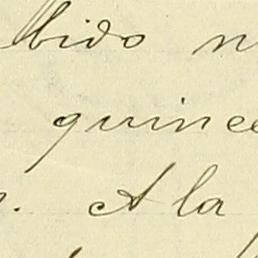 bido
quince
A la